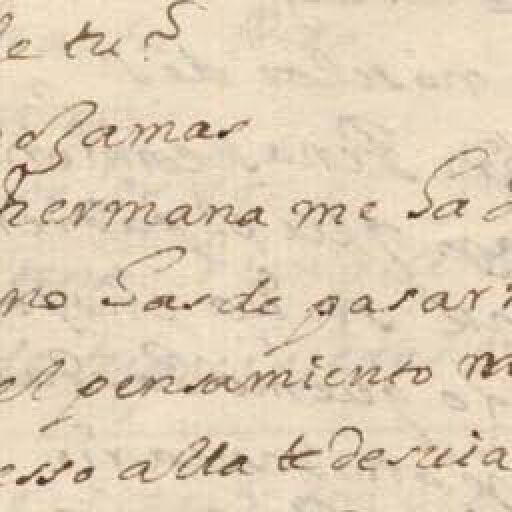 de tu?
Damas
hermana me ha
no has de pasar
el pensamiento m
esso alla te desuia